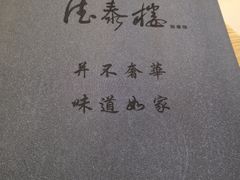 德泰楼
并不奢華
味道如家